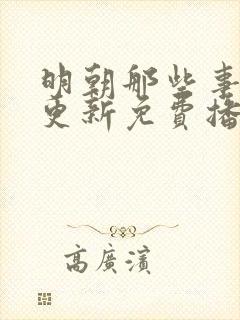 明朝那些事
更新免費播
高廣濱